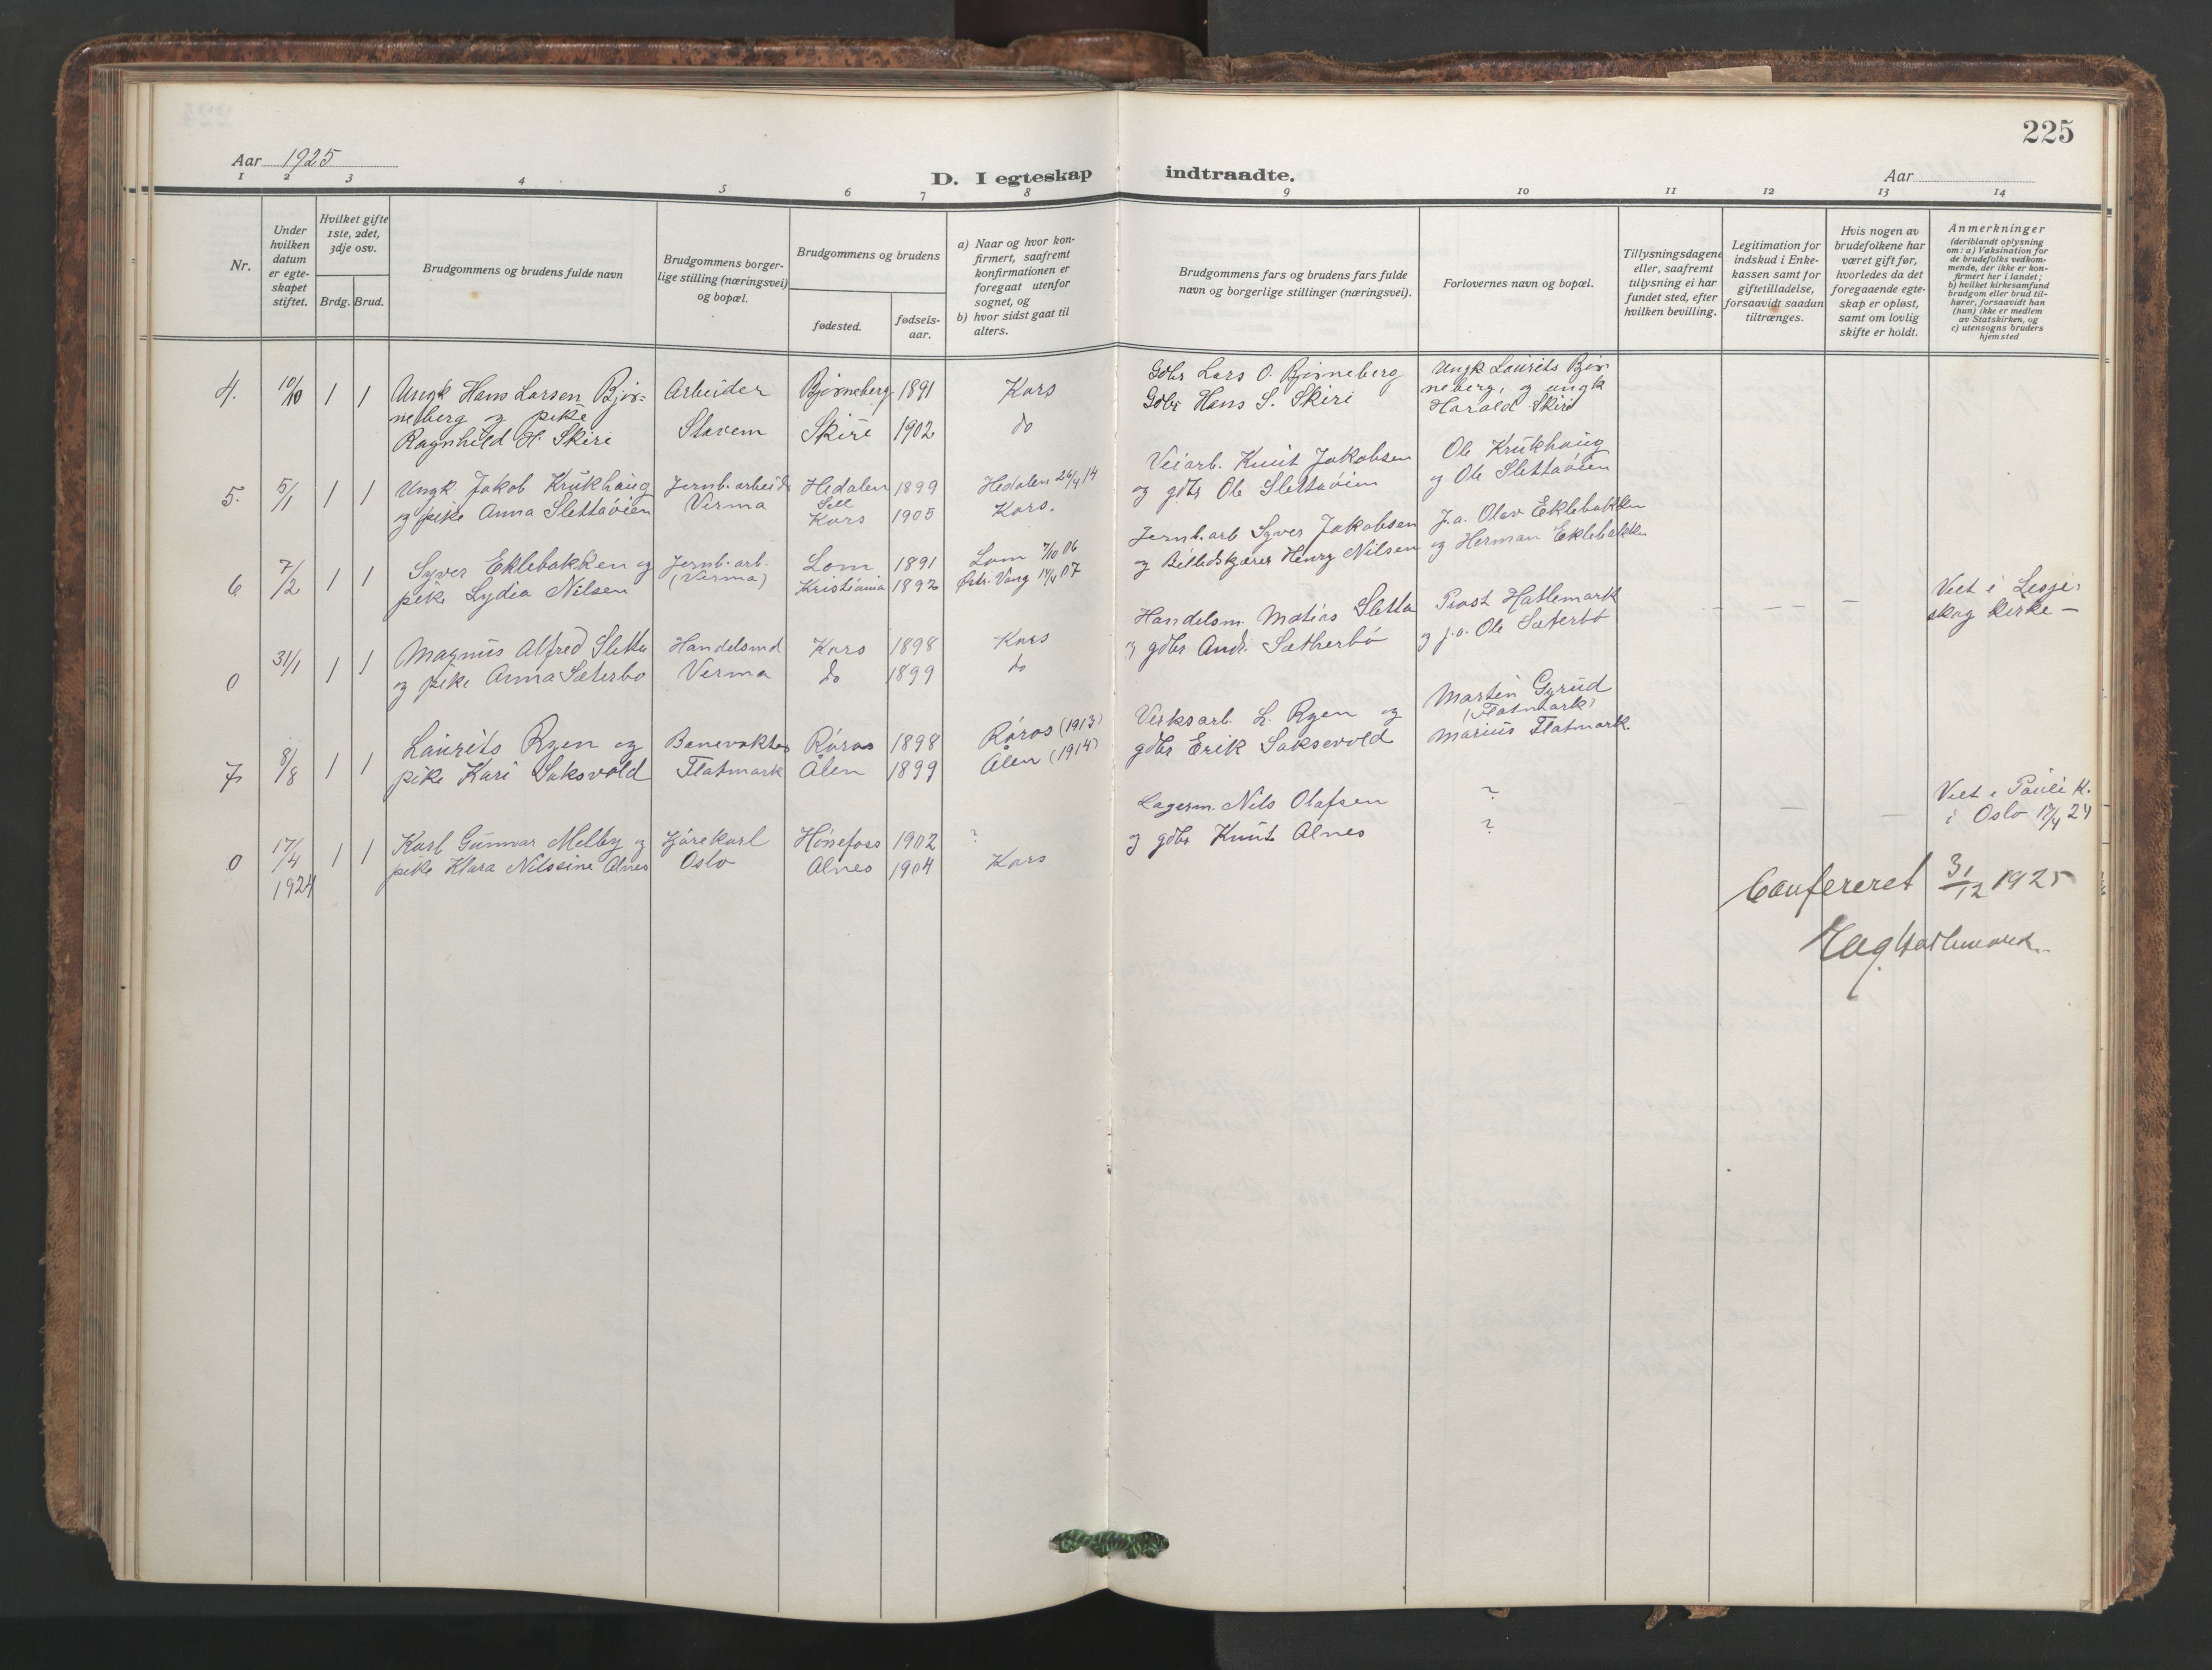 225
Aar 1925
D. I egteskap indtraadte.
Aar
1 2 3 4 5 6 7 8 9 10 11 12 13 14
Nr.
Under hvilken datum er egte-skapet stiftet.
Hvilket gifte 1ste, 2det, 3dje osv.
Brdg. Brud.
Brudgommens og brudens fulde navn
Brudgommens borger-lige stilling (næringsvei) og bopæl.
Brudgommens og brudens
fødested.
fødsels-aar.
a) Naar og hvor kon-firmert, saafremt konfirmationen er foregaat utenfor sognet, og
b) hvor sidst gaat til alters.
Brudgommens fars og brudens fars fulde navn og borgerlige stillinger (næringsvei).
Forlovernes navn og bopæl.
Tillysningsdagene eller, saafremt tillysning ei har fundet sted, efter hvilken bevilling.
Legitimation for indskud i Enke-kassen samt for giftetilladelse, forsaavidt saadan tiltrænges.
Hvis nogen av brudefolkene har været gift før, hvorledes da det foregaaende egte-skap er opløst, samt om lovlig skifte er holdt.
Anmerkninger
(deriblandt oplysning om: a) Vaksination for de brudefolks vedkom-mende, der ikke er kon-firmert her i landet; b) hvilket kirkesamfund brudgom eller brud til-hører, forsaavidt han (hun) ikke er medlem av Statskirken, og c) utensogns bruders hjemsted
4. 10/10 1 1 Ungk Hans Larsen Bjør= Arbeider Bjørneberg 1891 Kors Gdbr Lars O. Bjørneberg Ungk Laurits Bjør
neberg og pike Gdbr Hans S. Skiri neberg, og ungk
Ragnhild H. Skiri Slavem Skiri 1902 do Harald Skiri
5. 5/1 1 1 Ungk. Jakob Krukhaug Jernb. arbeid. Hedalen 1899 Hedalen 26/4 14 Veiarb. Knut Jakobsen Ole Krukhaug
Sell
og pike Anna Slettaøien Verma Kors 1905 Kors. og gdbr Ole Slettaøien og Ole Slettaøien
6 7/2 1 1 Syver Eklebakken og Jernb. arb. Lom 1891 Lom 7/10 06 Jernb. arb Syver Jakobsen J.a. Olav Eklebakken
pike Lydia Nilsen (Verma) Kristiania 1892 Østr. Vang 14/4 07 og Billedskjærer Henry Nilsen og Herman Eklebakken
0 31/1 1 1 Magnus Alfred Sletta Handelsmd Kors 1898 Kors Handelsm. Matias Sletta Prost Hatlemark — — — — Viet i Lesje-
og pike Anna Sæterbø Verma do 1899 do og gdbr Andr. Sætherbø og j.a. Ole Sæterbø skog kirke —
7. 8/8 1 1 Laurits Ryen og Banevokter Røros 1898 Røros (1913) Verksarb. L. Ryen og Martin Gyrud
(Flatmark)
pike Kari Saksvold Flatmark Ålen 1899 Ålen (1914) gdbr Erik Saksevold Marius Flatmark
0 17/4 1 1 Karl Gunnar Melby og Kjørekarl Hønefoss 1902 ? Lagerm. Nils Olafsen ? — — — Viet i Pauli K.
pike Klara Nilssine Alnes Oslo Alnes 1904 Kors og gdbr Knut Alnes ? i Oslo 17/4 24
1924
Confereret 31/12 1925
Hatlemark